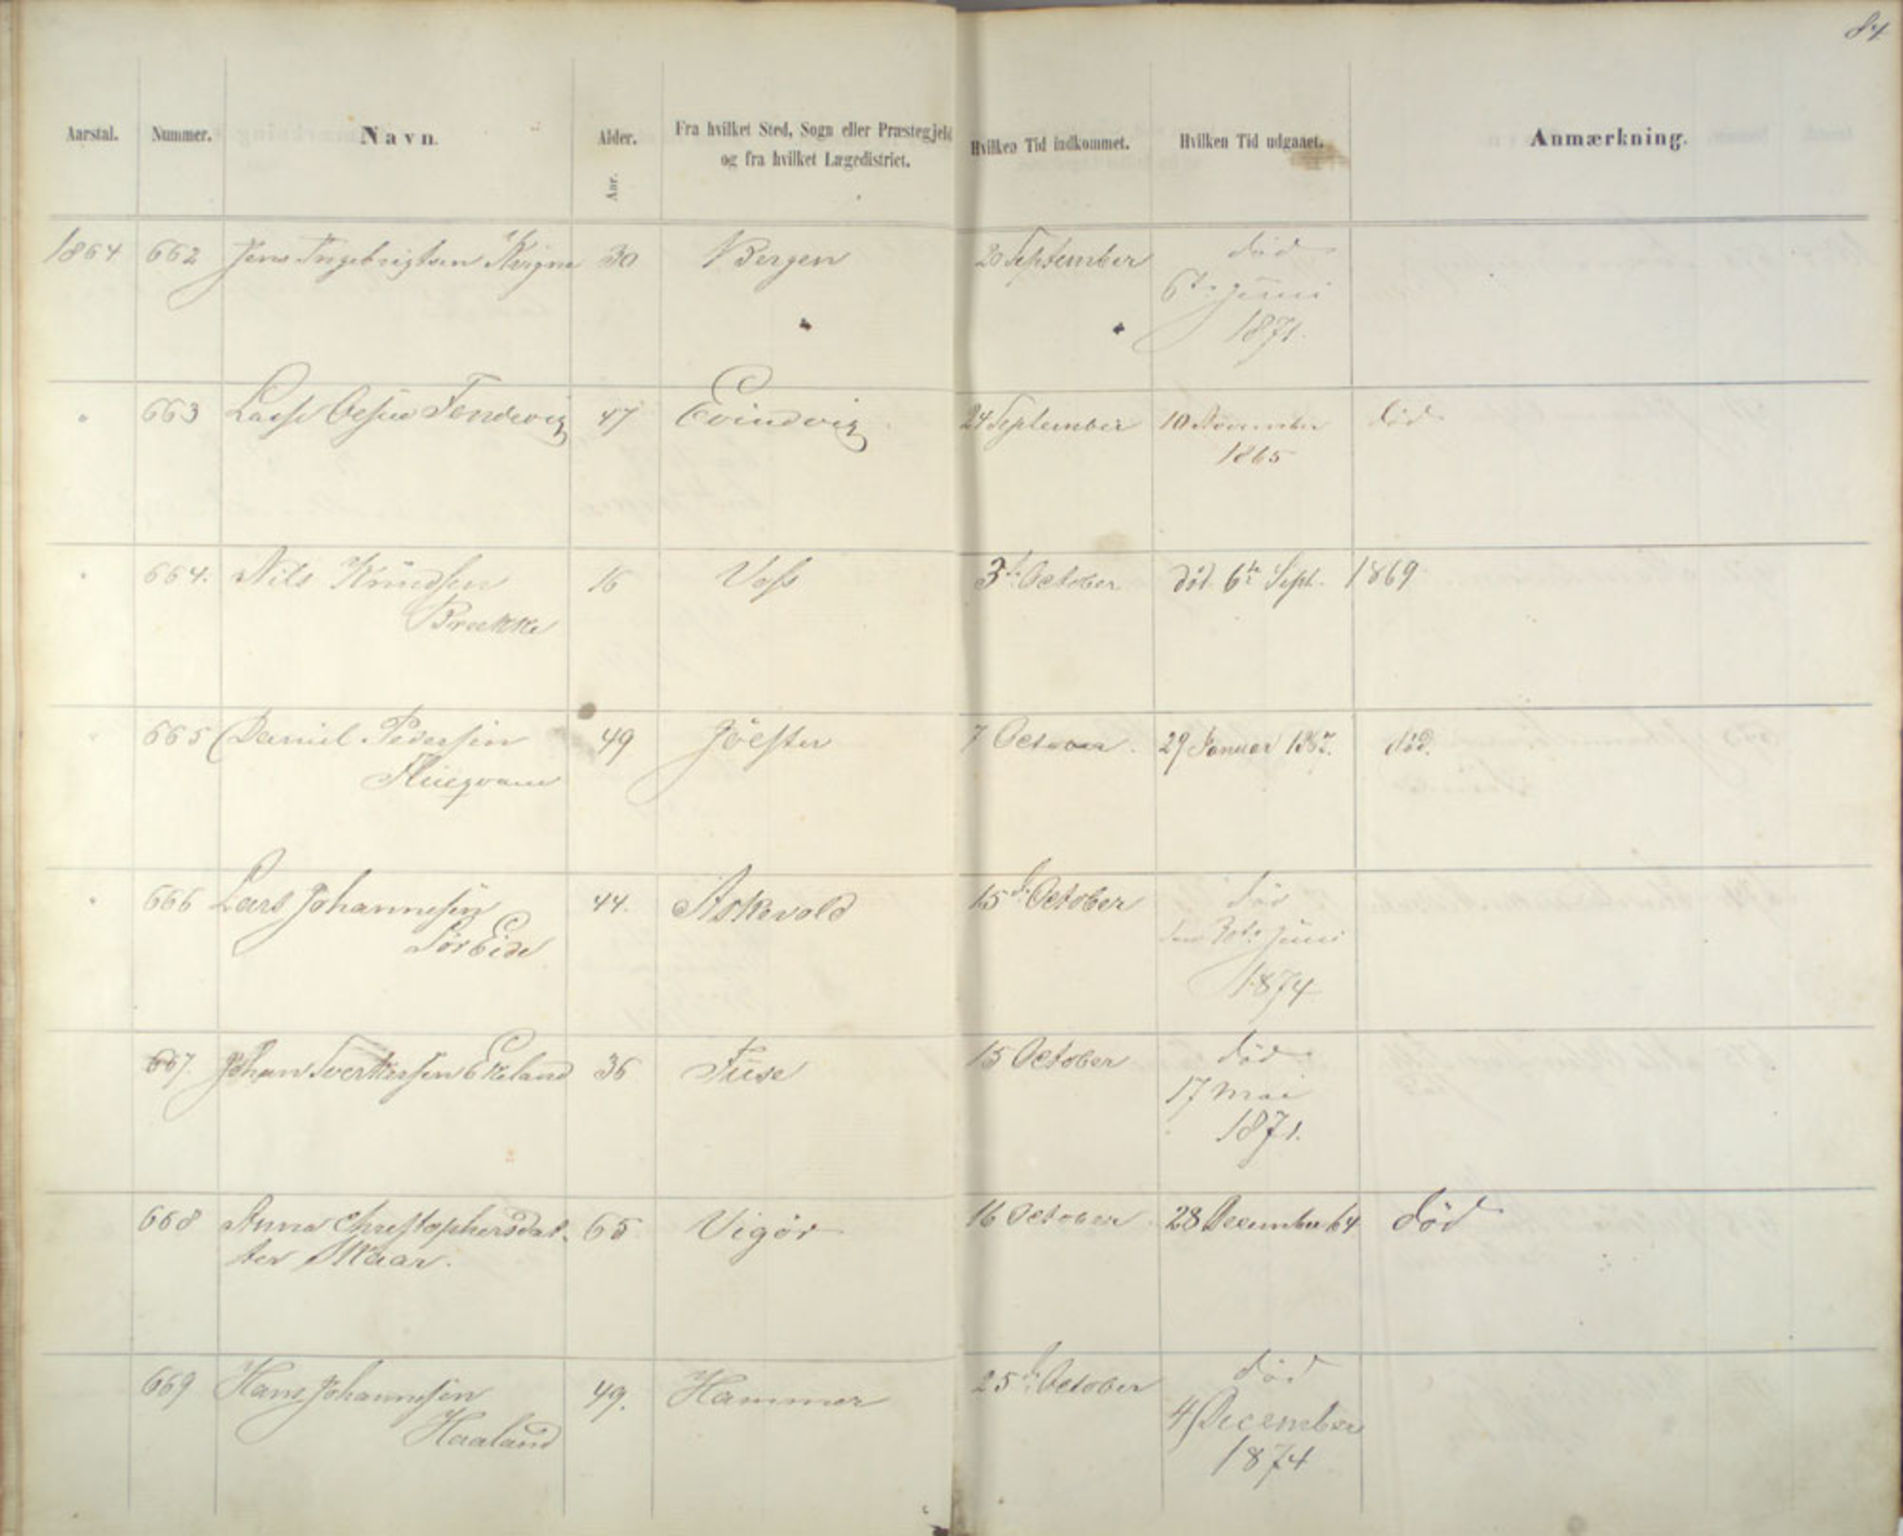 84
Aarstal. Nummer. Navn. Alder. Aar. Fra hvilket Sted, Sogn eller Præstegjeld
og fra hvilket Lægedistrict. Hvilken Tid indkommet. Hvilken Tid udgaaet. Anmærkning.
1864 662 Jens Ingebrigtsen 30 Bergen 20 September død
6te Juni
1871.
" 663 Lasse Olsen Tondevig 47 Evindvig 24 September 10 November død
1865
" 664. Nils Knudsen 16 Voss 3die October død 6te Sept. 1869
Brække
" 665 Daniel Pedersen 49 Jölster 7 October. 29 Januar 1867. død.
" 666 Lars Johannesen 44. Askevold 15de October død
den 30te Juni
Sør Eide
1874
667. Johan Sverkersen Ekeland 36 Fuse 15 October død
17 Mai
1871.
668 Anna Christophersdat- 65 Vigör 16 October 28 December 64 død
ter Skaar.
669 Hans Johannesen 49. Hammer 25de October død
Haaland
4 December
1874